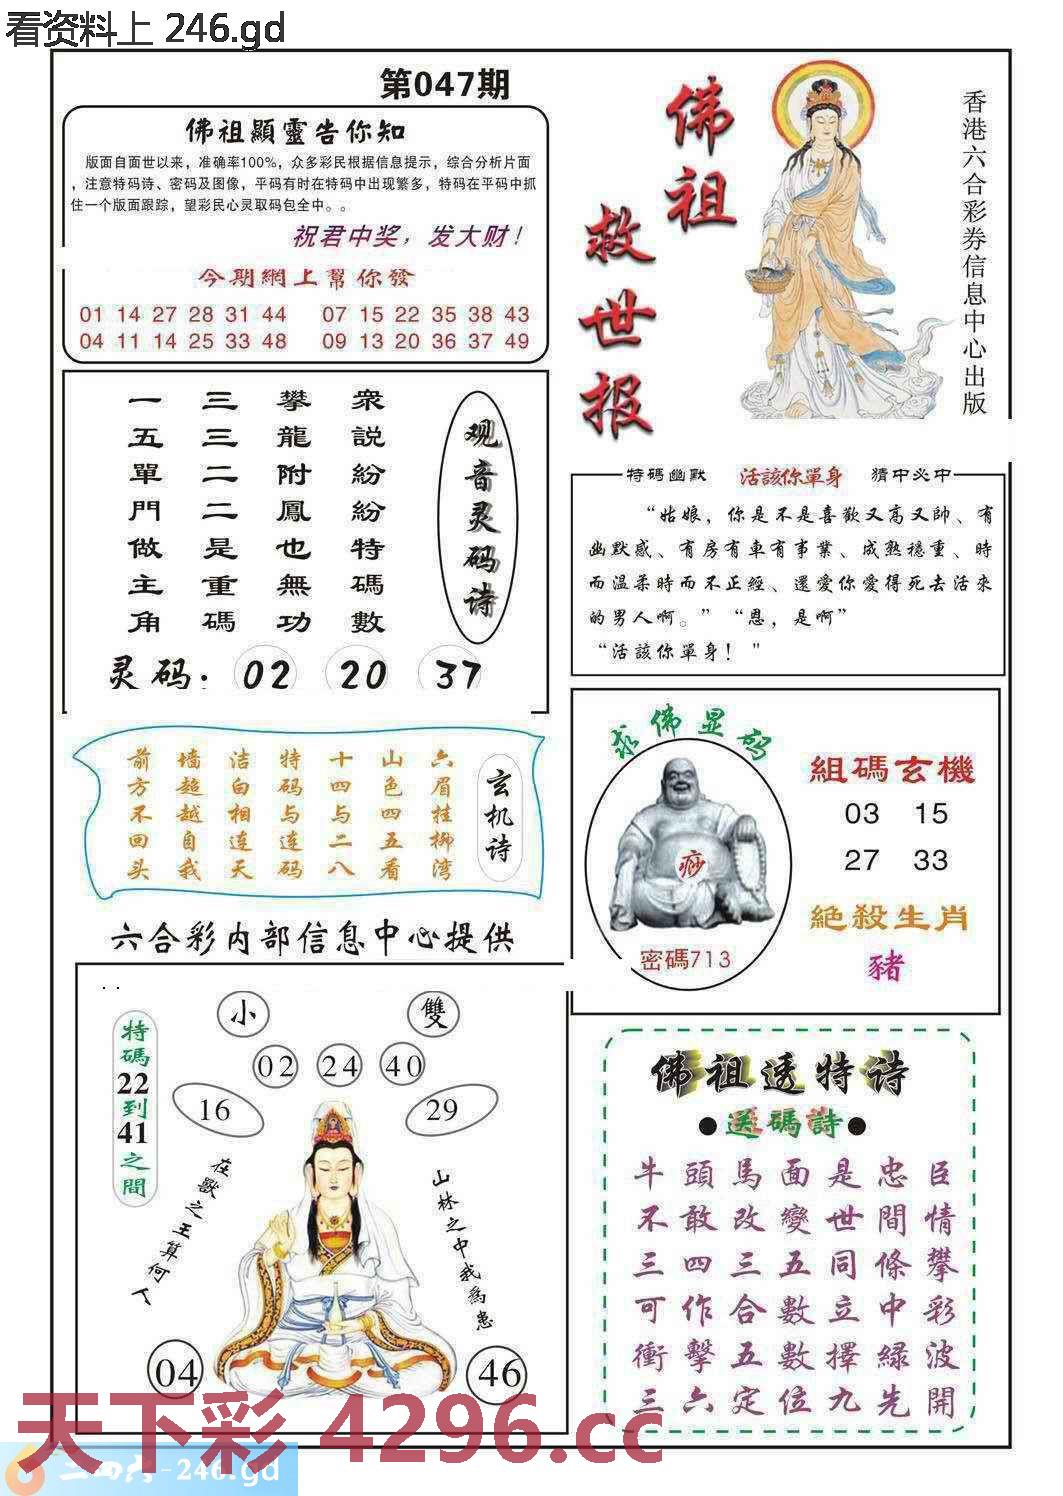 看资料上 246.gd
第047期
佛祖顯靈告你知
版面自面世以来，准确率100%，众多彩民根据信息提示，综合分析片面
，注意特码诗、密码及图像，平码有时在特码中出现繁多，特码在平码中抓
住一个版面跟踪，望彩民心灵取码包全中。。
祝君中奖，发大财！
今期網上幫你發
01 14 27 28 31 44 07 15 22 35 38 43
04 11 14 25 33 48 09 13 20 36 37 49
佛祖
救世报
香港六合彩券信息中心出版
观音灵码诗
衆説紛紛特碼數
攀龍附鳳也無功
三三二二是重碼
一五單門做主角
灵码：02 20 37
特碼幽默 活該你單身 猜中必中
“姑娘，你是不是喜歡又高又帥、有
幽默感、有房有車有事業、成熟穩重、時
而温柔時而不正經、還愛你愛得死去活來
的男人啊。”“恩，是啊”
“活該你單身！"
玄机诗
六眉挂柳湾
山色四五看
十四与二八
特码与连码
洁白相连天
墙超越自我
前方不回头
求佛显码
痧
密碼713
組碼玄機
03 15
27 33
絶殺生肖
豬
六合彩内部信息中心提供
特碼22到41之間
小 雙
02 24 40
16 29
在獸之王算何人
山林之中我為患
04 46
佛祖透特诗
●送碼詩●
牛頭馬面是忠臣
不敢改變世間情
三四三五同條攀
可作合數立中彩
衝擊五數擇緑波
三六定位九先開
天下彩 4296.cc
二四六-246.gd